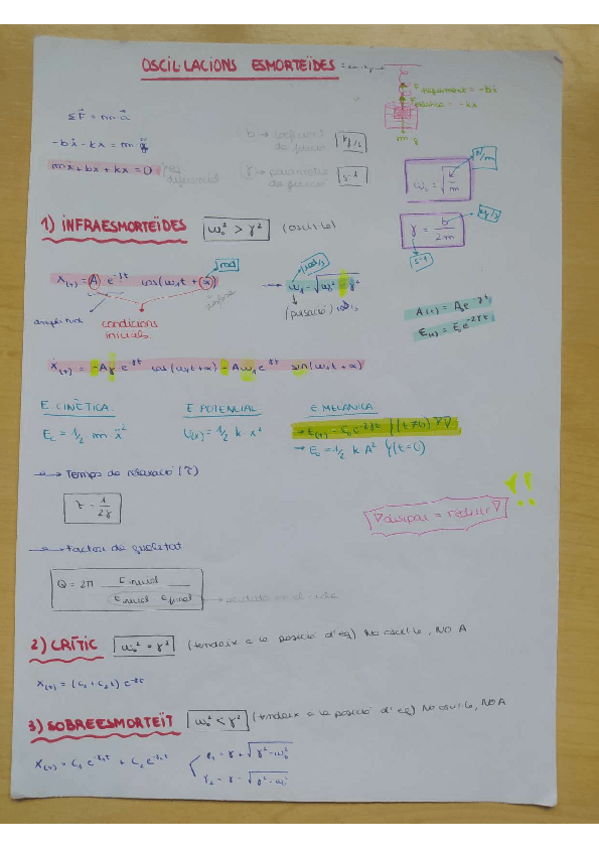 OSCIL·LACIONS ESMORTEÏDES
F rapament = -bẋ
F elàstica = -kx
m g
ΣF⃗ = m a⃗
-bẋ - kx = m ẍ
mẍ + bẋ + kx = 0
eq. diferencial
b → coeficient de fricció kg/s
γ → paràmetre de fricció s⁻¹
ω₀ = √k/m N/m
γ = b/2m kg/s
s⁻¹
1) INFRAESMORTEÏDES ω₀² > γ² (oscil·la)
x(t) = A e^-γt cos(ω₁t + α) rad
condicions inicials
desfase
→ ω₁ = √ω₀² - γ² rad/s
(pulsació) rad/s
A(t) = A₀e^-γt
E(t) = E₀e^-2γt
ẋ(t) = -Aγe^-γt cos(ω₁t+α) - Aω₁e^-γt sin(ω₁t+α)
E. CINÈTICA
E. POTENCIAL
E. MECÀNICA
Ec = 1/2 m·ẋ²
U(x) = 1/2 k·x²
→ E(t) = E₀e^-2γt (t≠0)
→ E₀ = 1/2 k A² (t=0)
→ Temps de relaxació (τ)
τ = 1/2γ
dissipar = reduir !!
→ Factor de qualitat
Q = 2π E inicial / E inicial - E final → perduda en el cicle
2) CRÍTIC ω₀² = γ² (tendeix a la posició d'eq) No oscil·la, NO A
x(t) = (C₁ + C₂t) e^-γt
3) SOBREESMORTEÏT ω₀² < γ² (tendeix a la posició d'eq) No oscil·la, NO A
x(t) = C₁e^-γ₁t + C₂e^-γ₂t
γ₁ = γ + √γ² - ω₀²
γ₂ = γ - √γ² - ω₀²